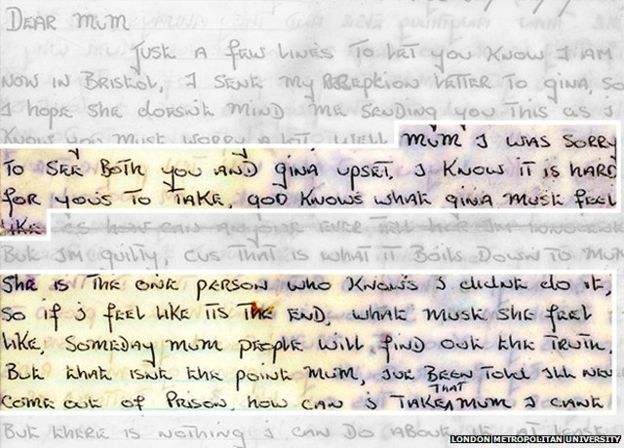 DEAR MUM
JUST A FEW LINES TO LET YOU KNOW I AM
NOW IN BRISTOL, I SENT MY RECEPTION LETTER TO GINA, SO
I HOPE SHE DOESN'T MIND ME SENDING YOU THIS AS I
KNOW YOU MUST WORRY A LOT. WELL MUM I WAS SORRY
TO SEE BOTH YOU AND GINA UPSET, I KNOW IT IS HARD
FOR YOUS TO TAKE, GOD KNOWS WHAT GINA MUST FEEL
LIKE COS HOW CAN ANYONE EVER TELL
BUT IM GUILTY, CUS THAT IS WHAT IT BOILS DOWN TO MUM
SHE IS THE ONE PERSON WHO KNOWS I DIDNT DO IT,
SO IF I FEEL LIKE ITS THE END, WHAT MUST SHE FEEL
LIKE, SOMEDAY MUM PEOPLE WILL FIND OUT THE TRUTH,
BUT THAT ISNT THE POINT MUM, IVE BEEN TOLD ILL NEV
COME OUT OF PRISON, HOW CAN I TAKE THAT MUM I CANT!
BUT THERE IS NOTHING I CAN DO ABOUT IT AT LEAST
LONDON METROPOLITAN UNIVERSITY